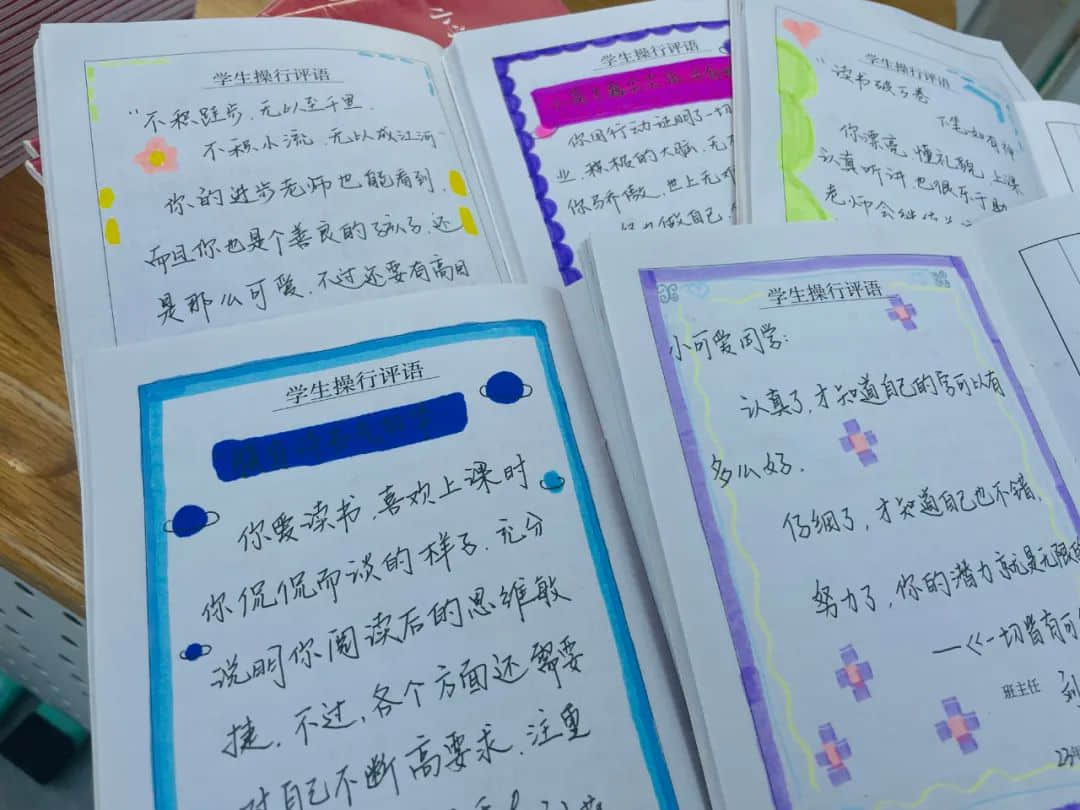 小
学生操行评语
“不积跬步，无以至千里，
不积小流，无以成江河
你的进步老师也能看到，
而且你也是个善良的孩子，还
是那么可爱，不过还要有高目
学生操行评语
你用行动证明了一切
业，积极的大脑，无
你骄傲，世上无
做自己
学生操行评语
“读书破万卷
下笔如有神
你漂亮，懂礼貌，上课
认真听讲也很乐于助
老师会继续
学生操行评语
腹有诗书气自华
你爱读书，喜欢上课时
你侃侃而谈的样子，充分
说明你阅读后的思维敏
捷，不过，各个方面还需要
对自己不断高要求，注重
学生操行评语
小可爱同学：
认真了，才知道自己的字可以有
多么好．
仔细了，才知道自己也不错，
努力了，你的潜力就是无限的
——《一切皆有可
班主任 刘
23年